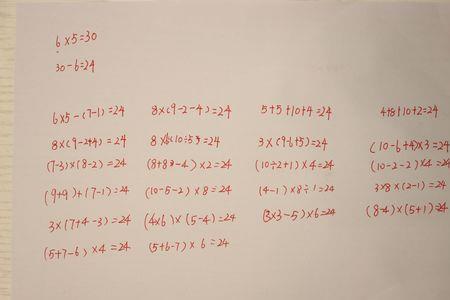 6×5=30
30-6=24
6×5-(7-1)=24 8×(9-2-4)=24 5+5+10+4=24 4+8+10+2=24
8×(9-2+4)=24 =24 3×(9-6+5)=24 (10-6+4)×3=24
(7-3)×(8-2)=24 (8+8-4)×2=24 (10÷2+1)×4=24 (10-2-2)×4=24
(9+9)+(7-1)=24 (10-5-2)×8=24 (4-1)×8÷1=24 3×8×(2-1)=24
3×(7+4-3)=24 (4×6)×(5-4)=24 (3×3-5)×6=24 (8-4)×(5+1)=24
(5+7-6)×4=24 (5+6-7)×6=24